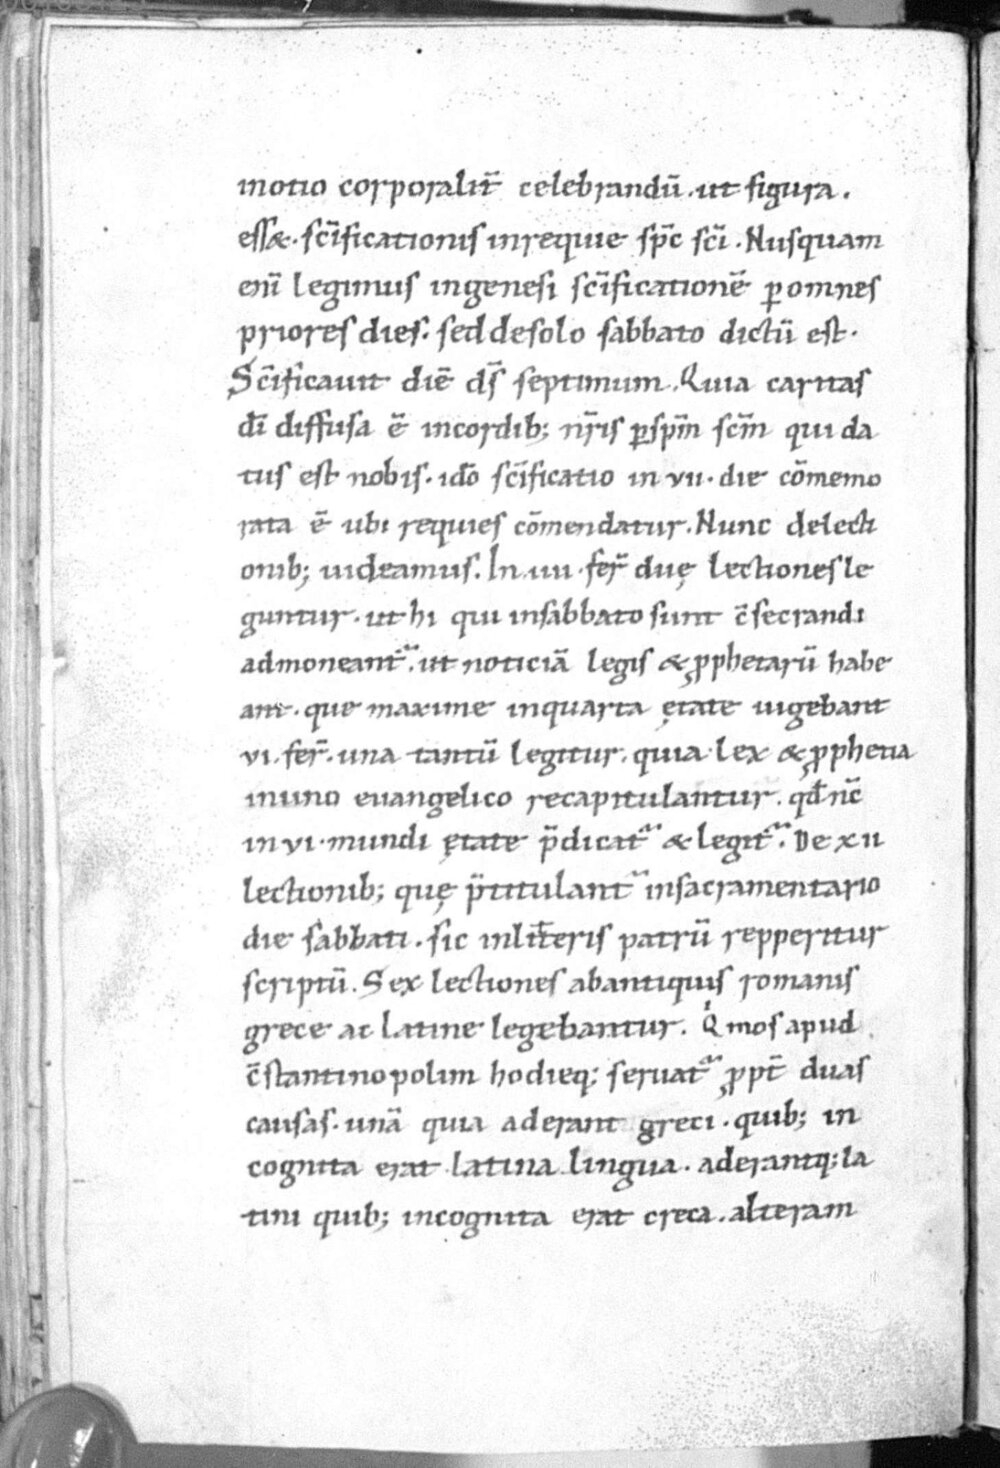 in otio corporalit̄ celebrandū. ut figura.
ess&. sc̄ificationis inrequie sp̄c sc̄i. Nusquam
eni̅ legimus ingenesi sc̄ificationē ꝑ omnes
priores dies. sed desolo sabbato dictū est.
Sc̄ificauit diē ds̄ septimum. Quia caritas
dī diffusa ē incordib; nr̄is ꝑ sp̄m scm̄ qui da
tus est nobis. idō sc̄ificatio in vii. die cōmemo
rata ē ubi requies cōmendatur. Nunc delecti
onib; uideamus. In iiii. fer̄ duę lectiones le
guntur. ut hi qui insabbato sunt c̄secrandi
admoneant̄. ut noticiā legis & ꝓphetarū habe
ant. que maxime inquarta ętate uigebant
vi. fer̄. una tantū legitur. quia lex & ꝓphetia
inuno euangelico recapitulantur. qd̄ nc̄
in vi. mundi ętate p̄dicat̄ & legit̄. De xii
lectionib; quę p̄titulant̄ insacramentario
die sabbati. sic inlit̄teris patrū repperitur
scriptū. Sex lectiones abantiquis romanis
grece ac latine legebantur. Qͥ mos apud
c̄stantinopolim hodieq; seruat̄ ꝓpt̄ duas
causas. unā quia aderant greci. quib; in
cognita erat latina lingua. aderantq; la
tini quib; incognita erat creca. alteram